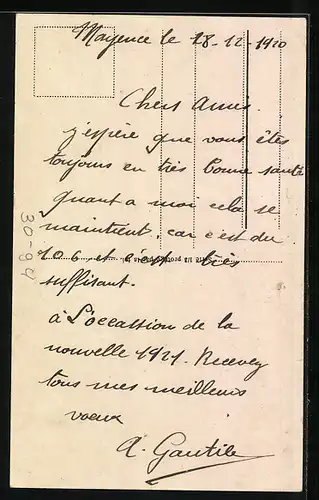 Mayence le 28-12-1920
Chers Amis.
j'espère que vous êtes
toujours en très bonne santé
quant a moi cela se
maintient, car c'est du
106 et c'est très
suffisant.
à L'occassion de la
nouvelle 1921. Recevez
tous mes meilleurs
voeux
A. Gautile
30-94